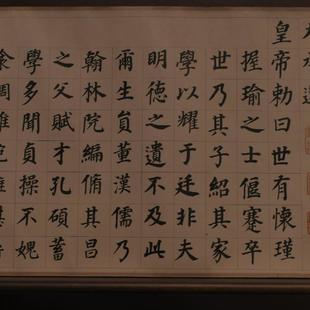 承運
皇帝勅曰世有懷瑾
握瑜之士偃蹇卒
世乃其子紹其家
學以耀于廷非夫
明德之遺不及此
爾生員董漢儒乃
翰林院編脩其昌
之父賦才孔碩蓄
學多聞貞操不媿